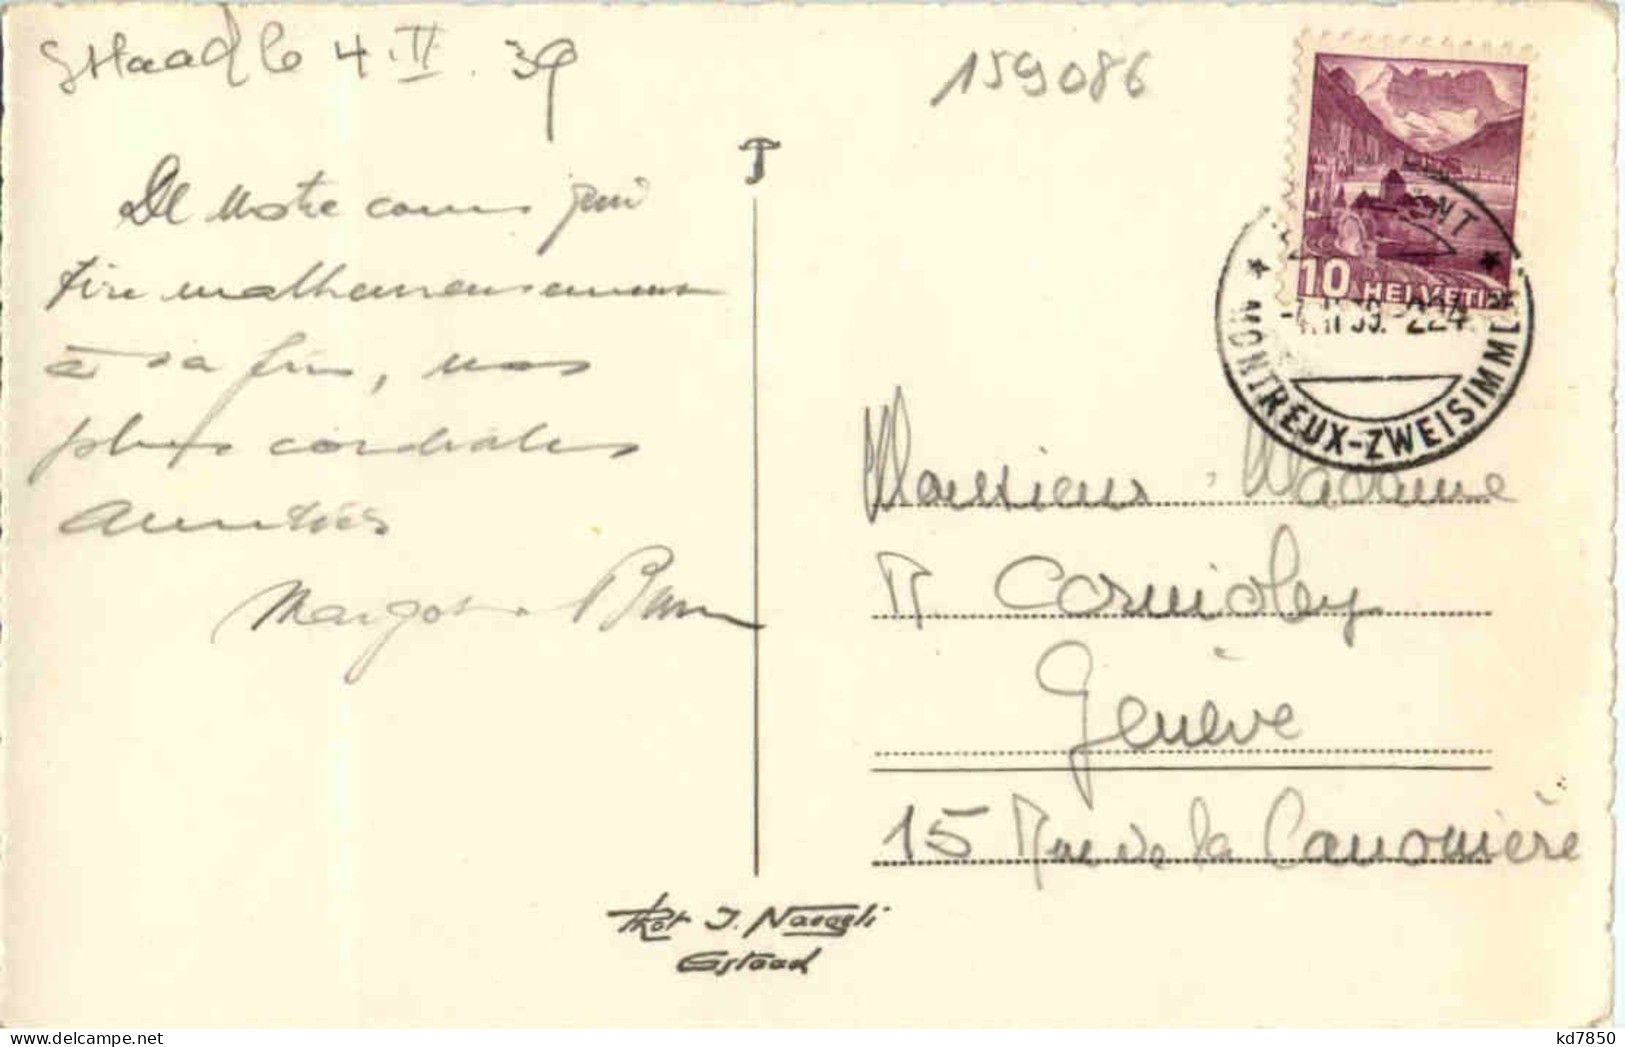 Gstaad le 4. II. 39
159086
De notre cours qui
tire malheureusement
à sa fin, nos
plus cordiales
amitiés
Margot
10 HELVETIA
MONTREUX-ZWEISIMMEN
Monsieur Madame
R Cornioley
Genève
15 Rue de la Canonnière
Phot J. Naegeli
Gstaad
kd7850